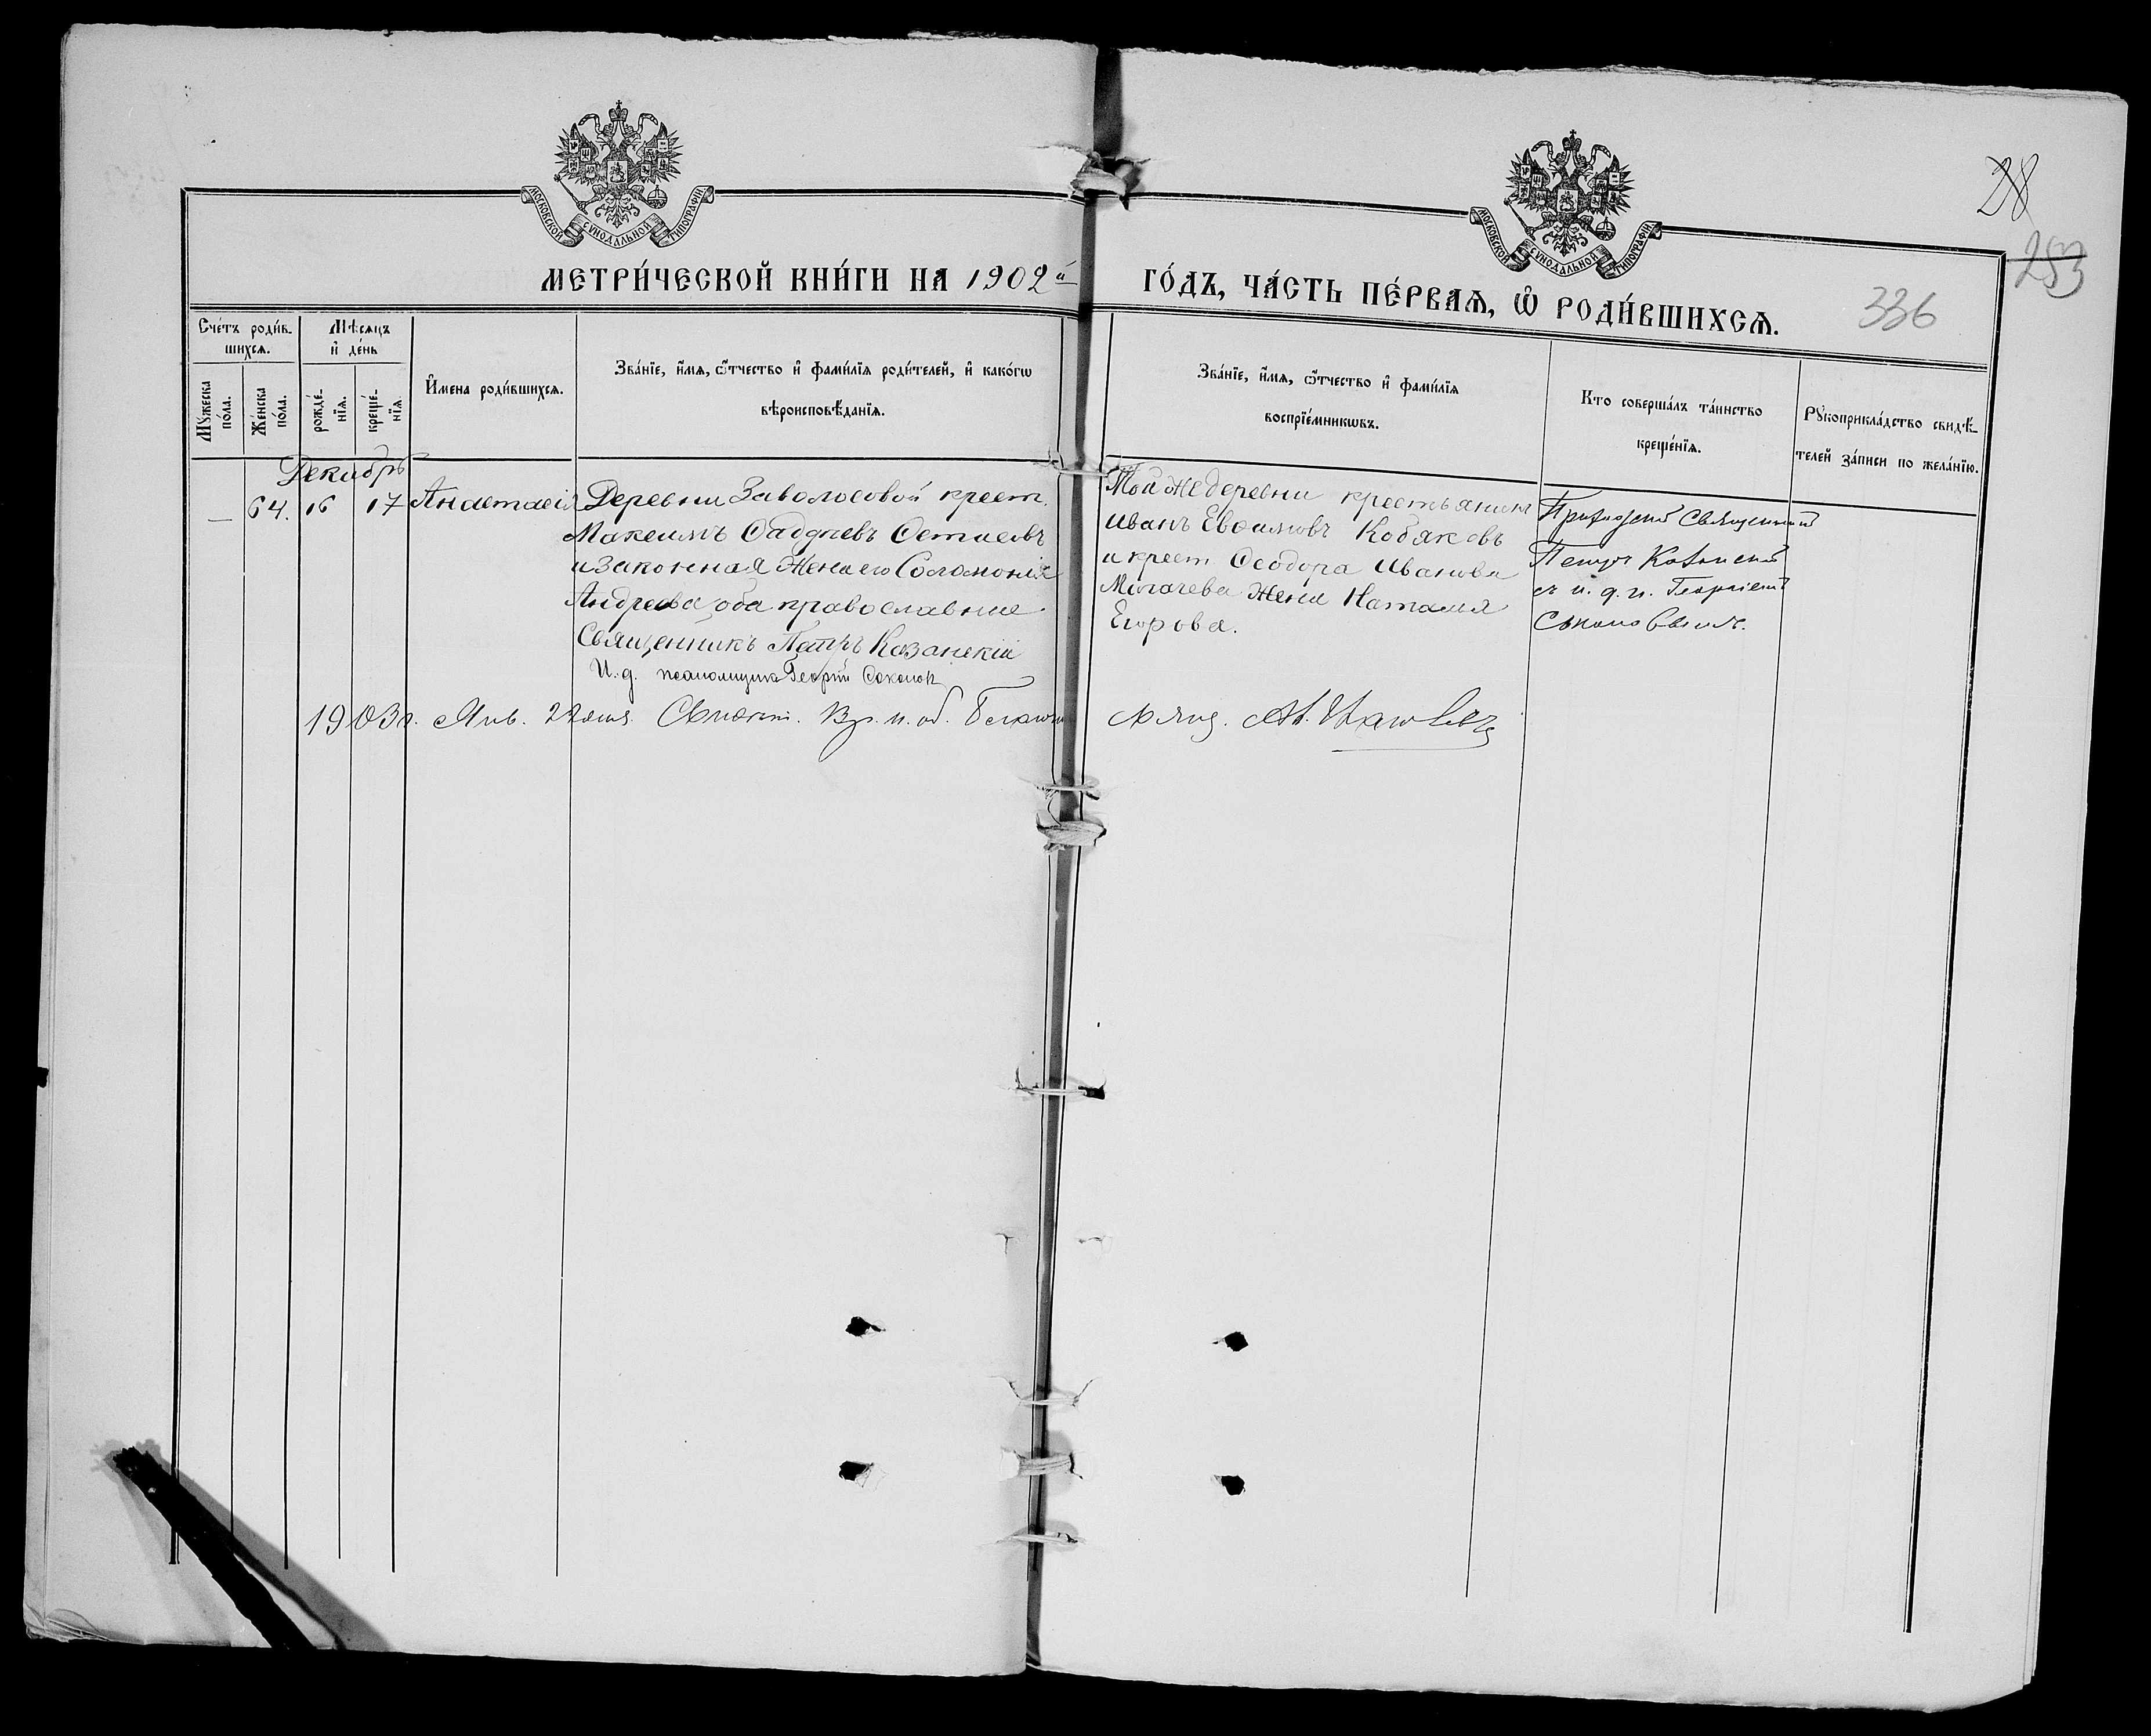 МОСКОВСКОЙ СѴНОДАЛЬНОЙ ТИПОГРАФІИ
МОСКОВСКОЙ СѴНОДАЛЬНОЙ ТИПОГРАФІИ
28
253
336
МЕТРИ́ЧЕСКОЙ КНИ́ГИ НА 1902й ГО́ДЪ, ЧА́СТЬ ПЕ́РВАѦ, Ѽ РОДИ́ВШИХСѦ.
Счéтъ роди́в-
шихсѧ.
Мꙋ́жеска
по́ла.
Же́нска
по́ла.
Мѣ́сѧцъ
и҆ де́нь
рожде́-
нїѧ.
креще́-
нїѧ.
И҆мена роди́вшихсѧ.
Зва́нїе, и҆́мѧ, ѻ҆́тчество и҆ фами́лїѧ роди́телей, и҆ како́гѡ
вѣроисповѣ́данїѧ.
Зва́нїе, и҆́мѧ, ѻ҆́тчество и҆ фами́лїѧ
воспрїе́мникѡвъ.
Кто соверша́лъ та́инство
креще́нїѧ.
Рꙋкоприкла́дство свидѣ́-
телей за́писи по жела́нїю.
Декабрь
— 64. 16 17 Анастасія
Деревни Заволосовой крест.
Максимъ Фаддѣевъ
и законная жена его Соломонія
Андреева, оба православные.
Священникъ Петръ Казанскій
И. д. псаломщика Георгій Соколов
Той же деревни крестьянинъ
Иванъ Евѳимовъ Кобяковъ
и крест. Ѳеодора Иванова
жена Наталия
Егорова.
Приходскій Священникъ
Петръ Казанскій
съ и. д. п. Георгіемъ
Соколовымъ.
1903 г. Янв. 22 дня